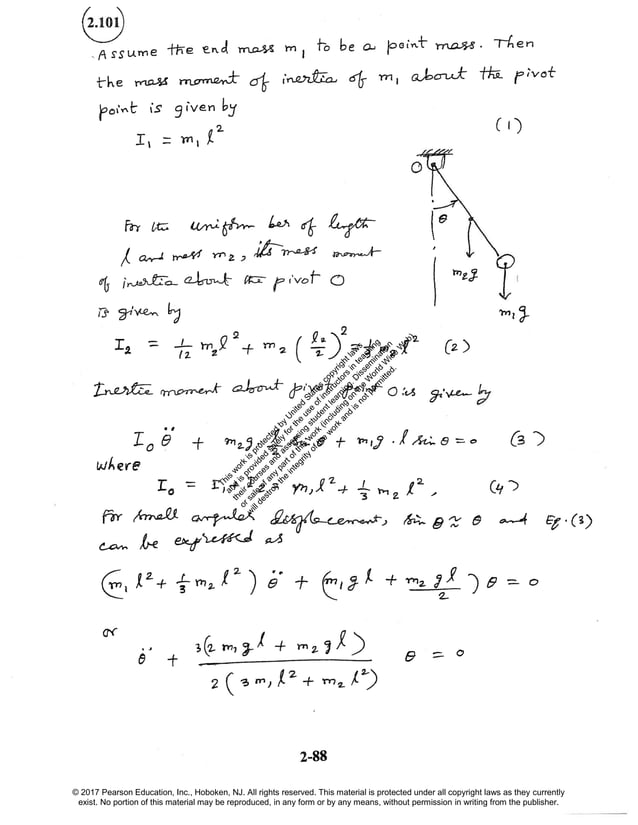 2.101
Assume the end mass m₁ to be a point mass. Then
the mass moment of inertia of m₁ about the pivot
point is given by
I₁ = m₁ l² (1)
O
θ
m₂g
m₁g
For the uniform bar of length
l and mass m₂, its mass moment
of inertia about the pivot O
is given by
I₂ = 1/12 m₂ l² + m₂ (l₂/2)² = l² (2)
Inertia moment about O is given by
I₀ θ̈ + m₂g + m₁g · l sin θ = 0 (3)
where
I₀ = m₁ l² + 1/3 m₂ l², (4)
For small angular displacement, sin θ ≈ θ and Eq. (3)
can be expressed as
(m₁ l² + 1/3 m₂ l²) θ̈ + (m₁ g l + m₂ g l / 2) θ = 0
or
θ̈ + 3(2 m₁ g l + m₂ g l) / 2(3 m₁ l² + m₂ l²) θ = 0
This work is protected by United States copyright laws
and is provided solely for the use of instructors in teaching
their courses and assessing student learning. Dissemination
or sale of any part of this work (including on the World Wide Web)
will destroy the integrity of the work and is not permitted.
2-88
© 2017 Pearson Education, Inc., Hoboken, NJ. All rights reserved. This material is protected under all copyright laws as they currently
exist. No portion of this material may be reproduced, in any form or by any means, without permission in writing from the publisher.